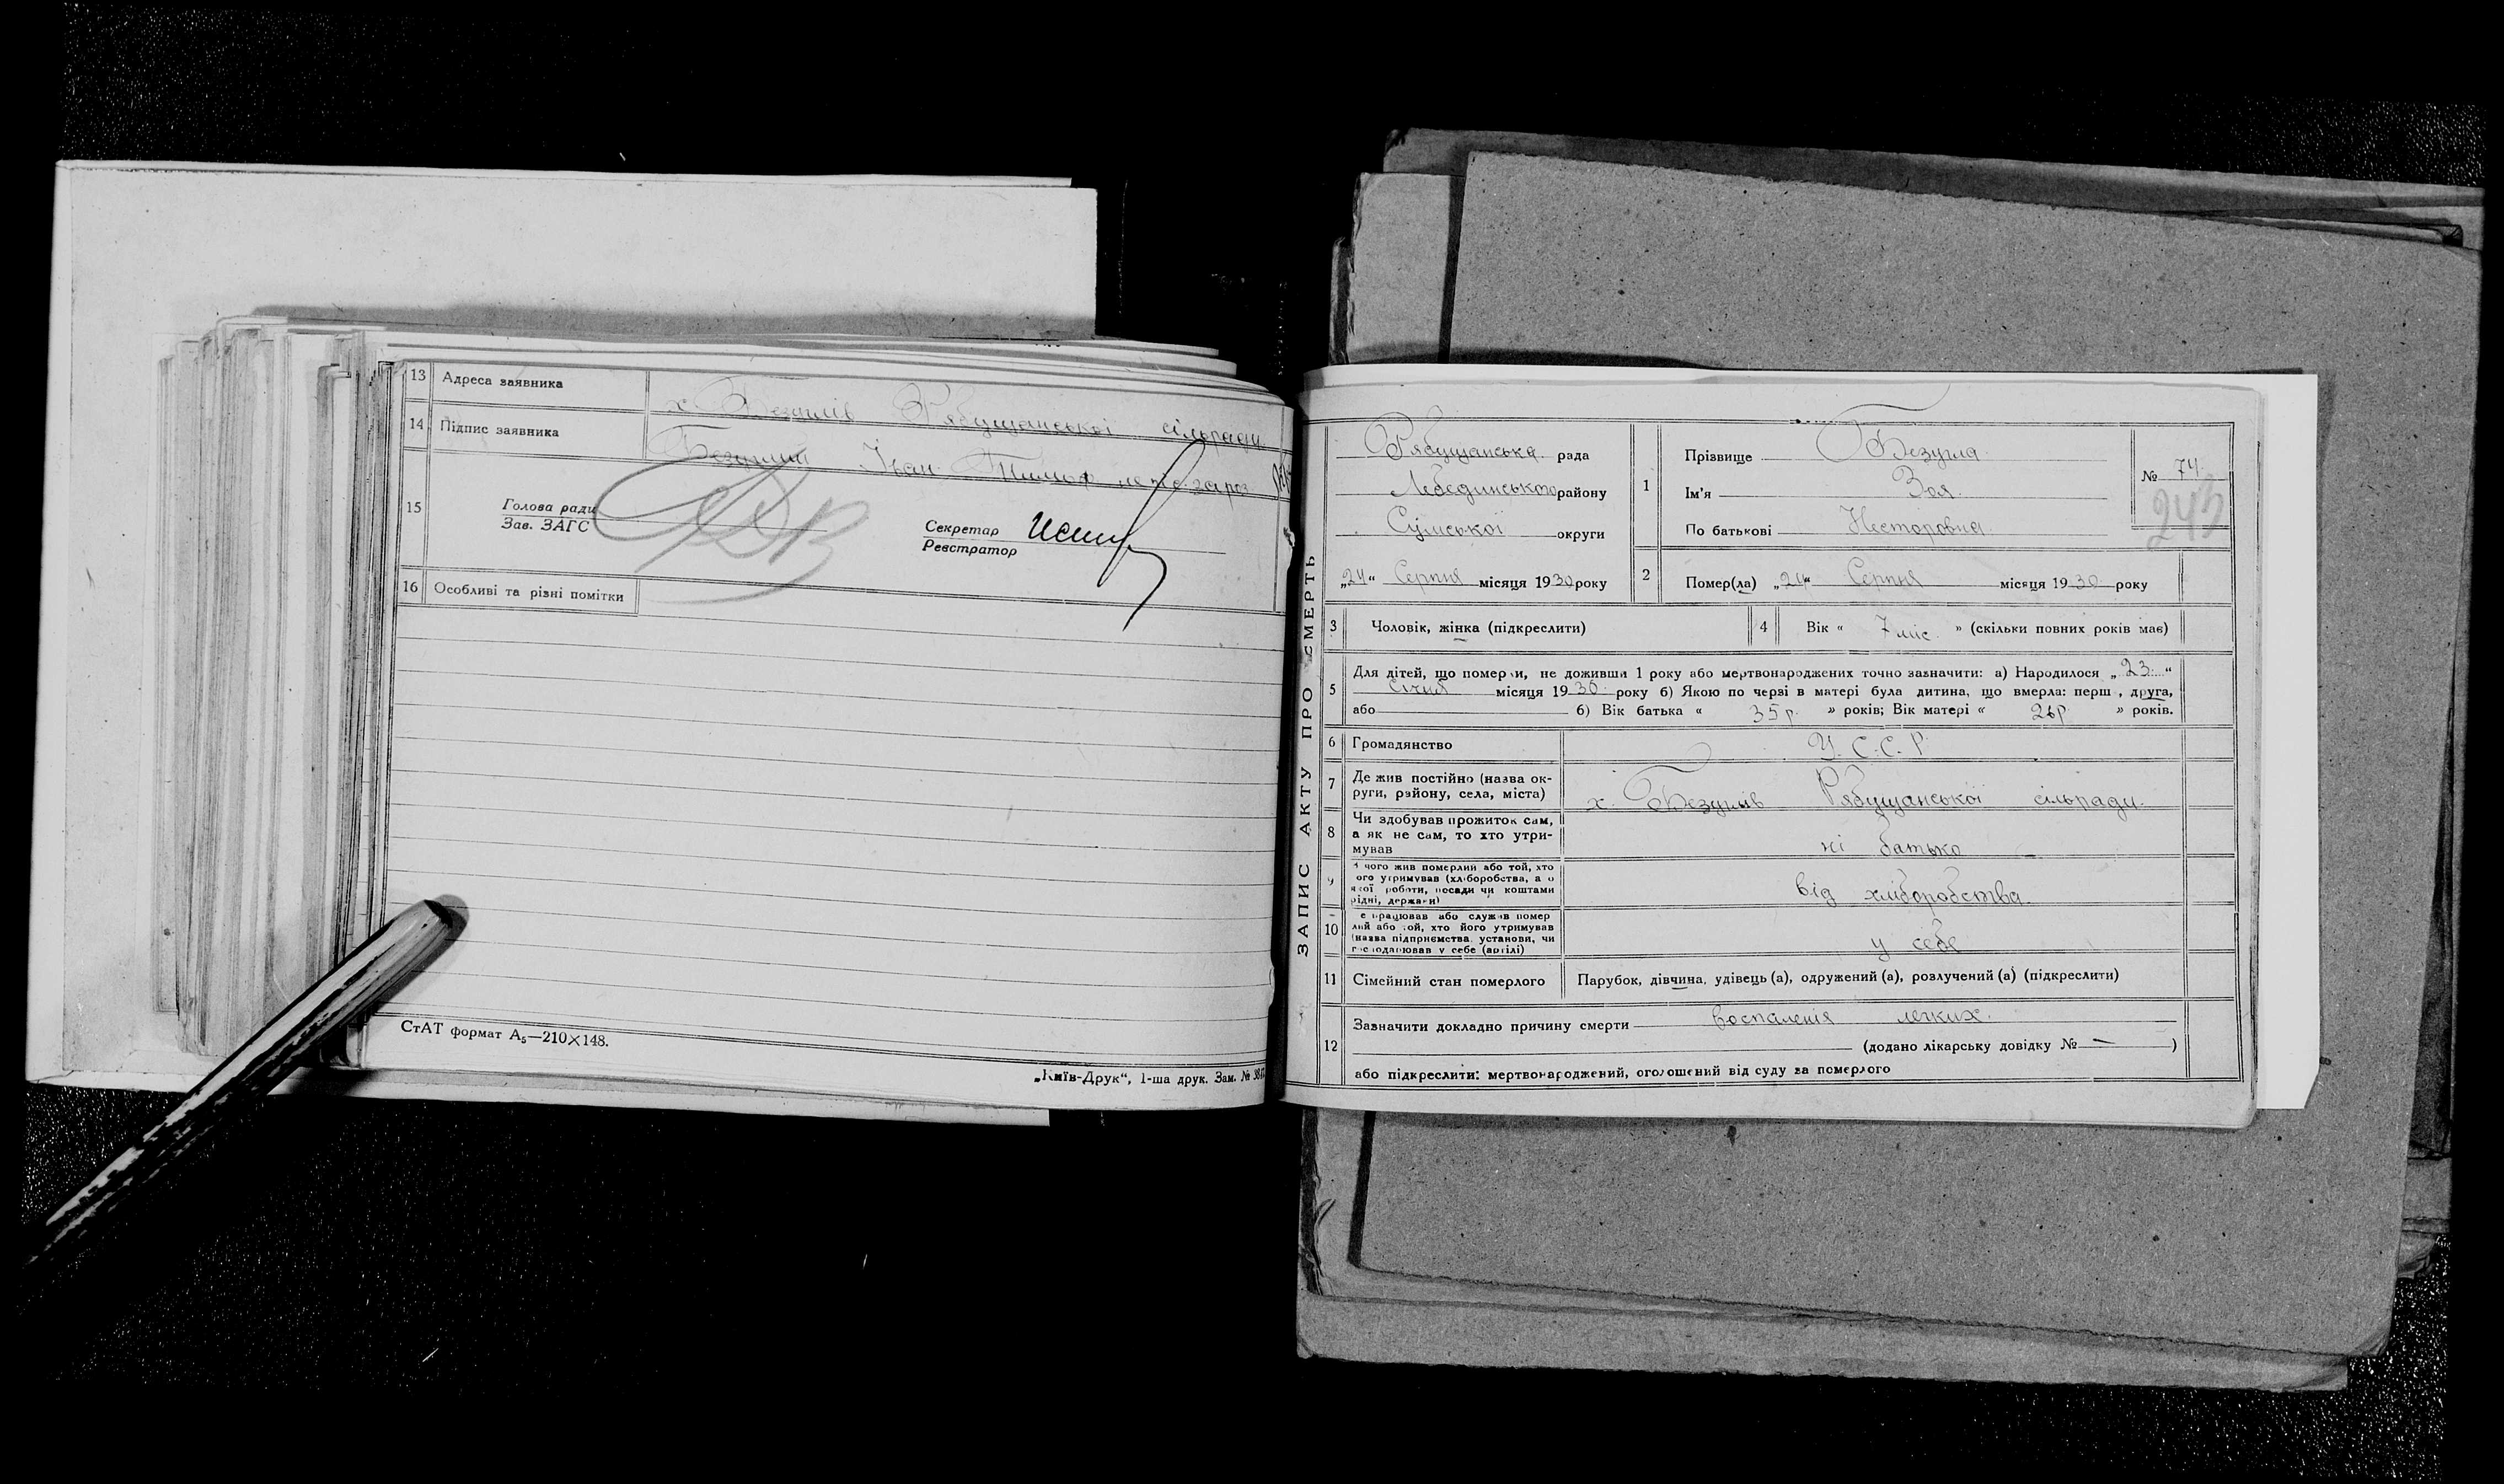 13 Адреса заявника х. Безуглів Рябущанської сільради
14 Підпис заявника Безуглий Іван Тимоф
15 Голова ради
Зав. ЗАГС
Секретар
Реєстратор
16 Особливі та різні помітки
СтАТ формат А5—210×148.
„Київ-Друк“, 1-ша друк. Зам. №
ЗАПИС АКТУ ПРО СМЕРТЬ
Рябущанська рада
Лебединського району
Сумської округи
„24“ Серпня місяця 1930 року
1 Прізвище Безугла
Ім'я Зоя
По батькові Несторовна
№ 74
243
2 Помер(ла) „24“ Серпня місяця 1930 року
3 Чоловік, жінка (підкреслити)
4 Вік « 7 міс. » (скільки повних років має)
5 Для дітей, що померли, не доживши 1 року або мертвонароджених точно зазначити: а) Народилося „23“
Січня місяця 1930 року б) Якою по черзі в матері була дитина, що вмерла: перш , друга,
або б) Вік батька « 35 р. » років; Вік матері « 26 р. » років.
6 Громадянство У.С.С.Р
7 Де жив постійно (назва ок-
руги, району, села, міста) х. Безуглів Рябущанської сільради
8 Чи здобував прожиток сам,
а як не сам, то хто утри-
мував ні батько
9 чого жив померлий або той, хто
ого утримував (хліборобства, а о
якої роботи, посади чи коштами
рідні, держави) від хліборобства.
10 е працював або служив помер
лий або той, хто його утримував
(назва підприємства, установи, чи
господарював у себе (артілі) у себе
11 Сімейний стан померлого Парубок, дівчина, удівець (а), одружений (а), розлучений (а) (підкреслити)
12 Зазначити докладно причину смерти воспаленія легких.
(додано лікарську довідку № — )
або підкреслити: мертвонароджений, оголошений від суду за померлого